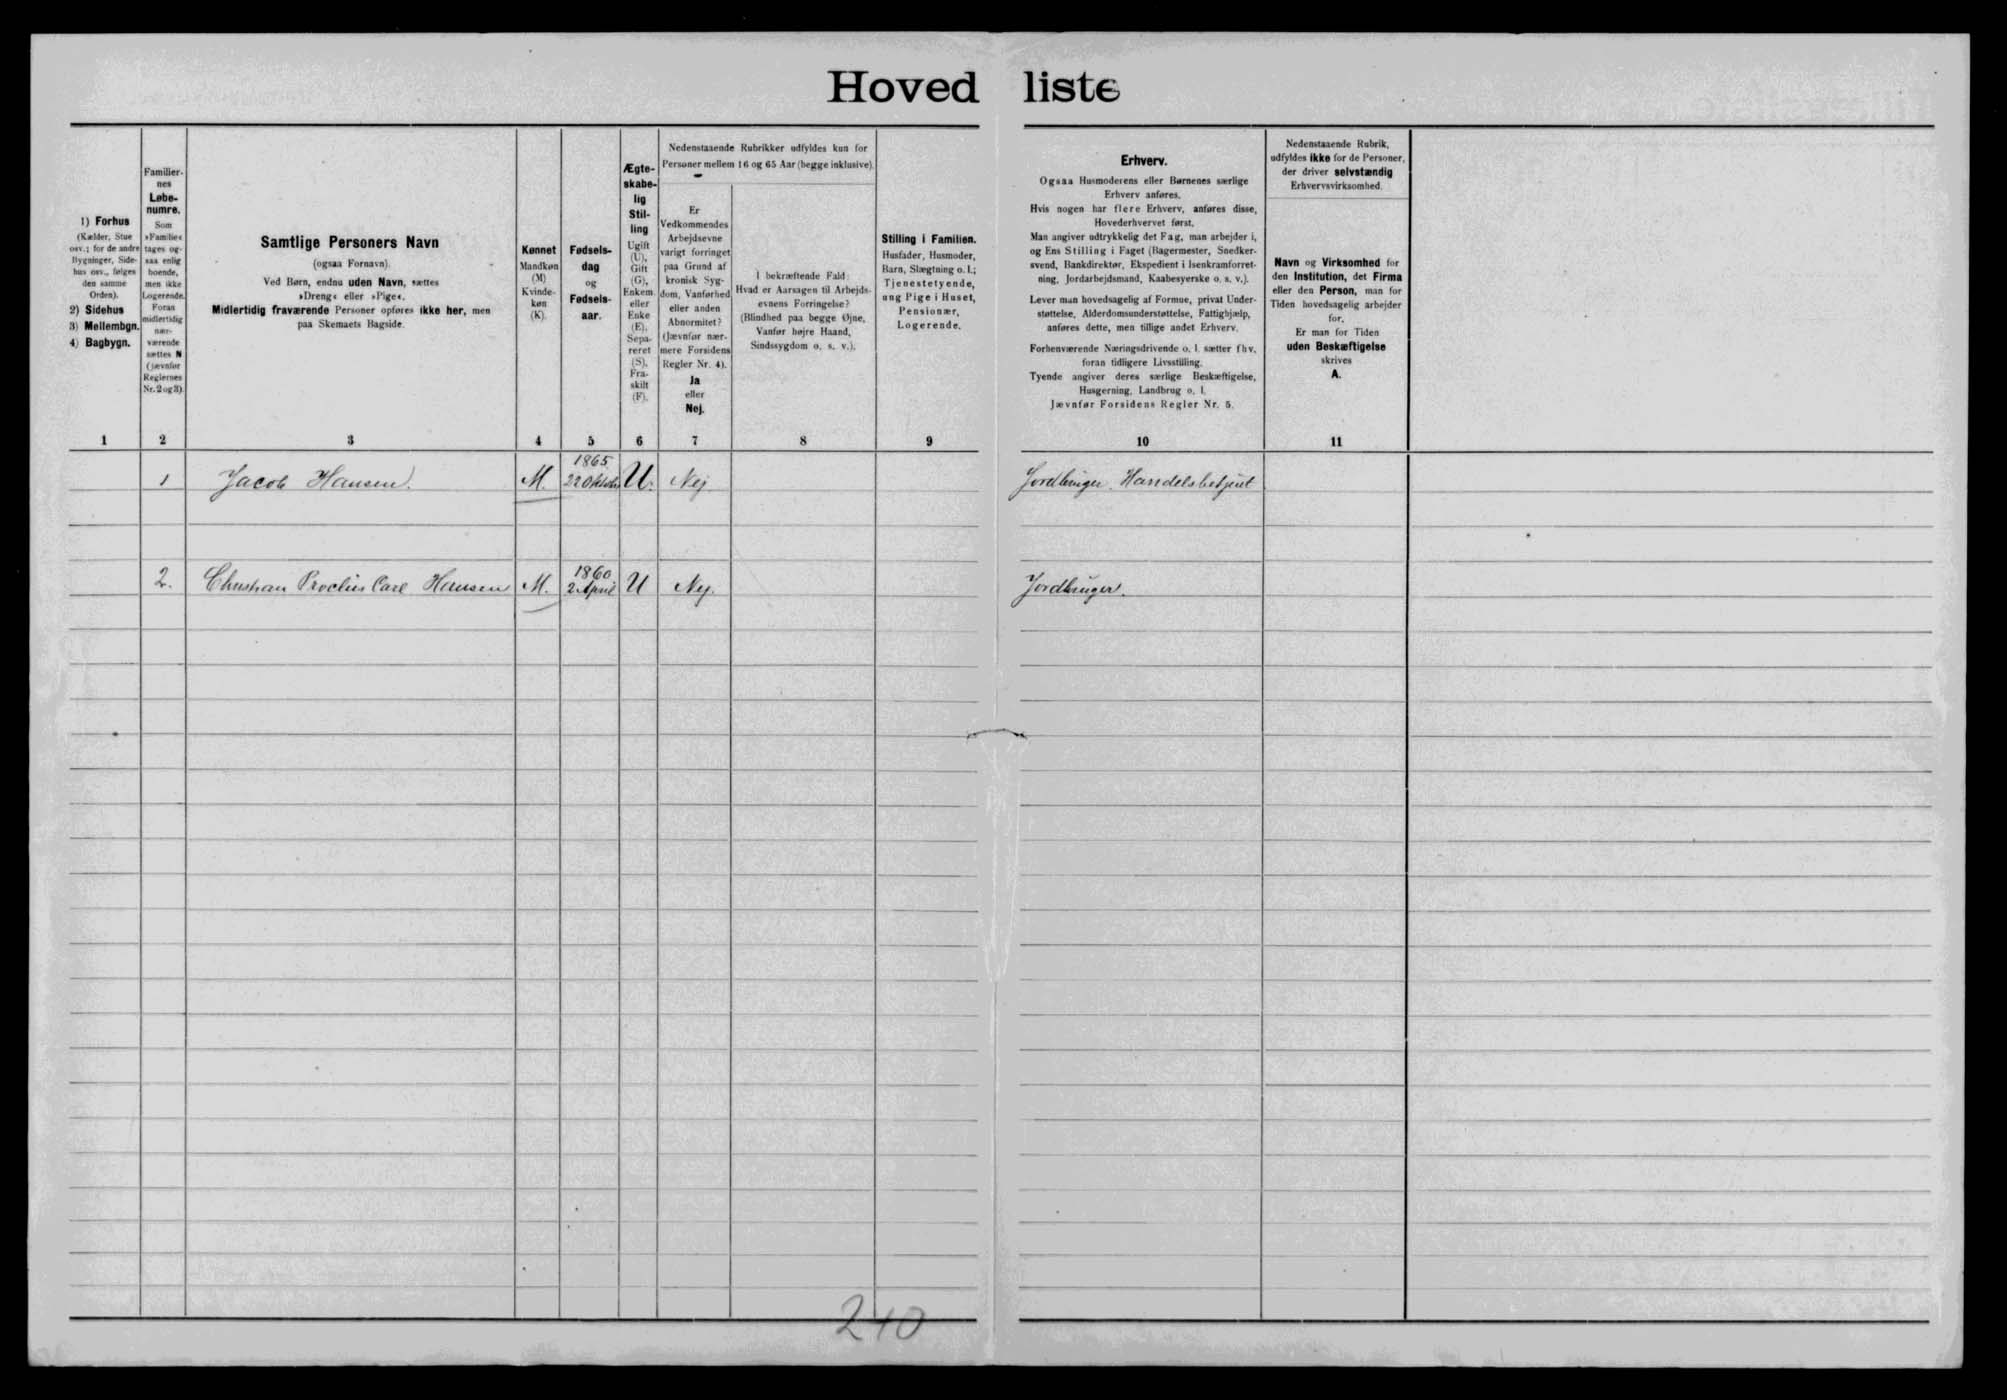 Hovedliste
1) Forhus
(Kælder, Stue
osv.; for de andre
Bygninger, Side-
hus osv., følges
den samme
Orden).
2) Sidehus
3) Mellembgn.
4) Bagbygn.
Familier-
nes
Løbe-
numre.
Som
»Familie«
tages og-
saa enlig
boende,
men ikke
Logerende.
Foran
midlertidig
nær-
værende
sættes N
(jævnfør
Reglernes
Nr. 2 og 3)
Samtlige Personers Navn
(ogsaa Fornavn).
Ved Børn, endnu uden Navn, sættes
»Dreng« eller »Pige«.
Midlertidig fraværende Personer opføres ikke her, men
paa Skemaets Bagside.
Kønnet
Mandkøn
(M)
Kvinde-
køn
(K).
Fødsels-
dag
og
Fødsels-
aar.
Ægte-
skabe-
lig
Stil-
ling
Ugift
(U),
Gift
(G),
Enkem.
eller
Enke
(E),
Sepa-
reret
(S),
Fra-
skilt
(F).
Nedenstaaende Rubrikker udfyldes kun for
Personer mellem 16 og 65 Aar (begge inklusive).
Er
Vedkommendes
Arbejdsevne
varigt forringet
paa Grund af
kronisk Syg-
dom, Vanførhed
eller anden
Abnormitet?
(Jævnfør nær-
mere Forsidens
Regler Nr. 4).
Ja
eller
Nej.
I bekræftende Fald:
Hvad er Aarsagen til Arbejds-
evnens Forringelse?
(Blindhed paa begge Øjne,
Vanfør højre Haand,
Sindssygdom o. s. v.).
Stilling i Familien.
Husfader, Husmoder,
Barn, Slægtning o. l.;
Tjenestetyende,
ung Pige i Huset,
Pensionær,
Logerende.
Erhverv.
Ogsaa Husmoderens eller Børnenes særlige
Erhverv anføres.
Hvis nogen har flere Erhverv, anføres disse,
Hovederhvervet først.
Man angiver udtrykkelig det Fag, man arbejder i,
og Ens Stilling i Faget (Bagermester, Snedker-
svend, Bankdirektør, Ekspedient i Isenkramforret-
ning, Jordarbejdsmand, Kaabesyerske o. s. v.).
Lever man hovedsagelig af Formue, privat Under-
støttelse, Alderdomsunderstøttelse, Fattighjælp,
anføres dette, men tillige andet Erhverv.
Forhenværende Næringsdrivende o. l. sætter fhv.
foran tidligere Livsstilling.
Tyende angiver deres særlige Beskæftigelse,
Husgerning, Landbrug o. l.
Jævnfør Forsidens Regler Nr. 5.
Nedenstaaende Rubrik,
udfyldes ikke for de Personer,
der driver selvstændig
Erhvervsvirksomhed.
Navn og Virksomhed for
den Institution, det Firma
eller den Person, man for
Tiden hovedsagelig arbejder
for.
Er man for Tiden
uden Beskæftigelse
skrives
A.
1 2 3 4 5 6 7 8 9 10 11
1865
1 Jacob Hansen. M. 22 Oktober U. Nej Jordbruger. Handelsbetjent
1860
2. Christian Proctius Carl Hansen M. 2 April U Nej. Jordbruger.
240